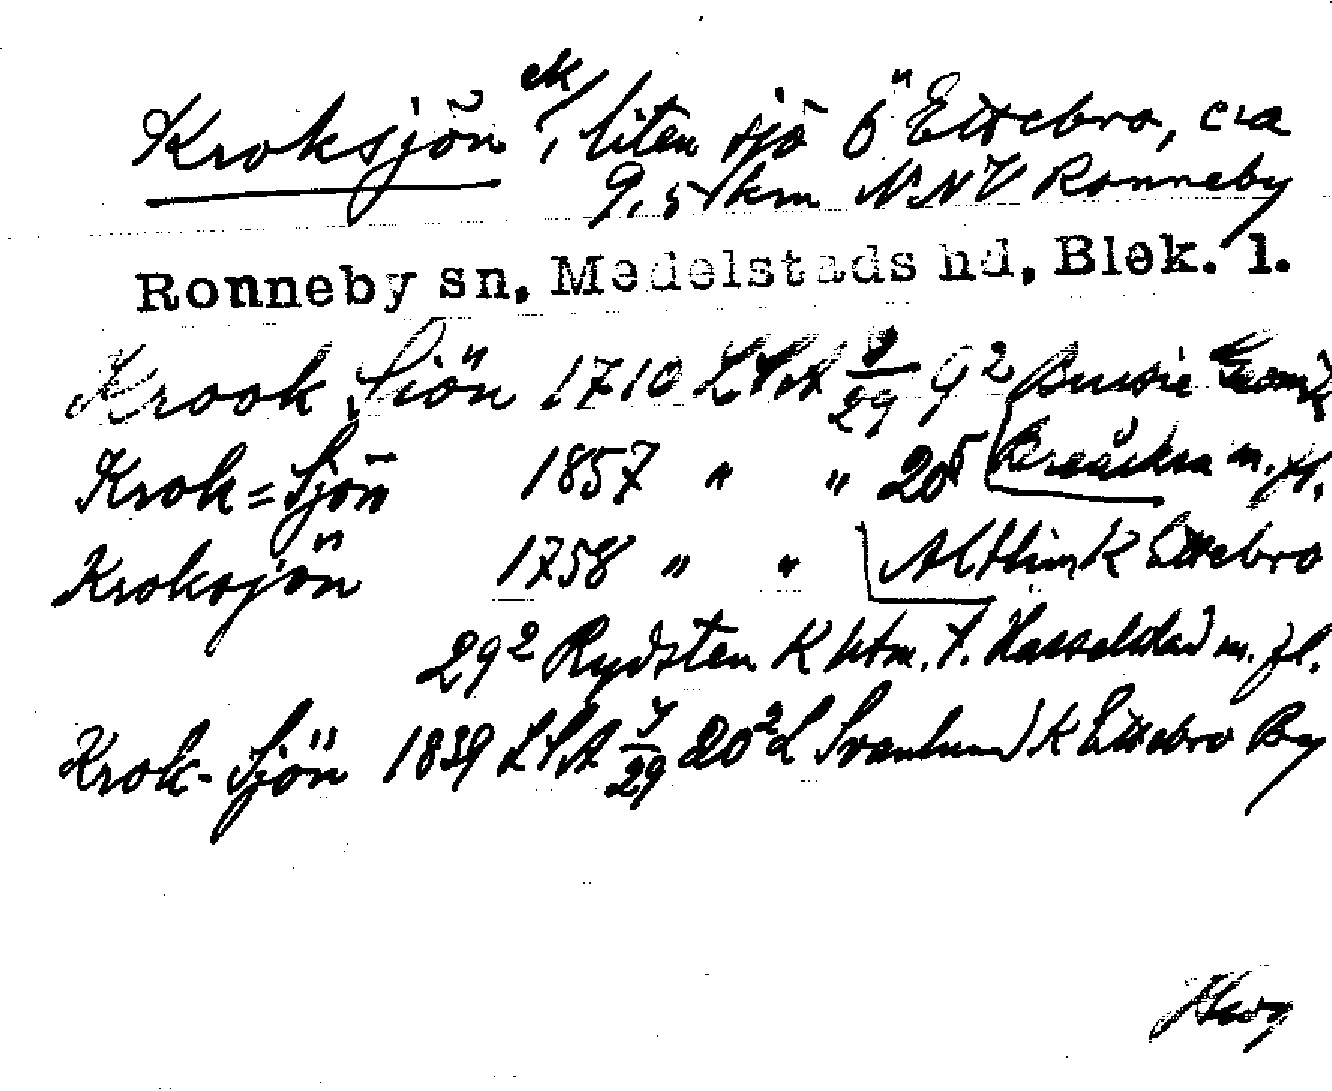 Kroksjön ek/, liten sjö ö Ettebro, c:a
9,5 km NNV Ronneby
Ronneby sn, Medelstads hd, Blek. l.
Krook Siön 1710 LSA 9/29 9²
Krok=Sjön 1857 " " 20⁵ Bredåkra m. fl.
Kroksjön 1758 " " Althin K Ettebro
29² Rydsten K htm. t. Hasselstad m. fl.
Krok-Sjön 1839 LSA 7/29 20² L Svanlund K Ettebro By